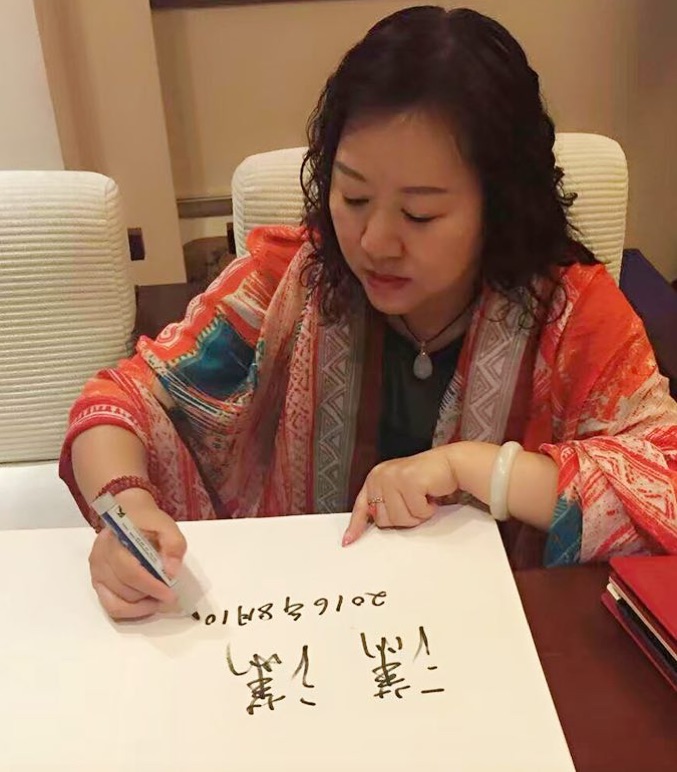 潇潇
2016年8月10